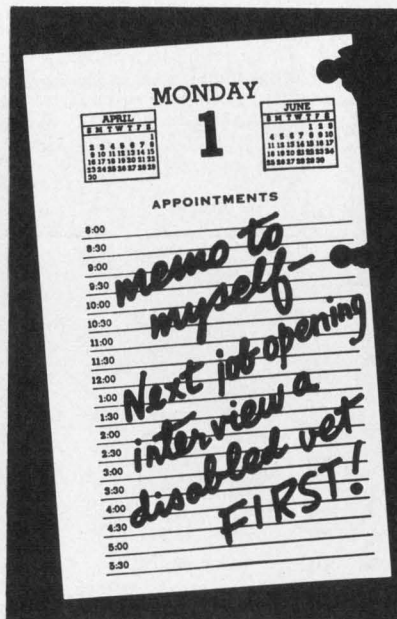 MONDAY
1
APRIL
S M T W T F S
1
2 3 4 5 6 7 8
9 10 11 12 13 14 15
16 17 18 19 20 21 22
23 24 25 26 27 28 29
30
JUNE
S M T W T F S
1 2 3
4 5 6 7 8 9 10
11 12 13 14 15 16 17
18 19 20 21 22 23 24
25 26 27 28 29 30
APPOINTMENTS
8:00
8:30
9:00
9:30
10:00
10:30
11:00
11:30
12:00
1:00
1:30
2:00
2:30
3:00
3:30
4:00
4:30
5:00
5:30
memo to
myself—
Next job opening
interview a
disabled vet
FIRST!